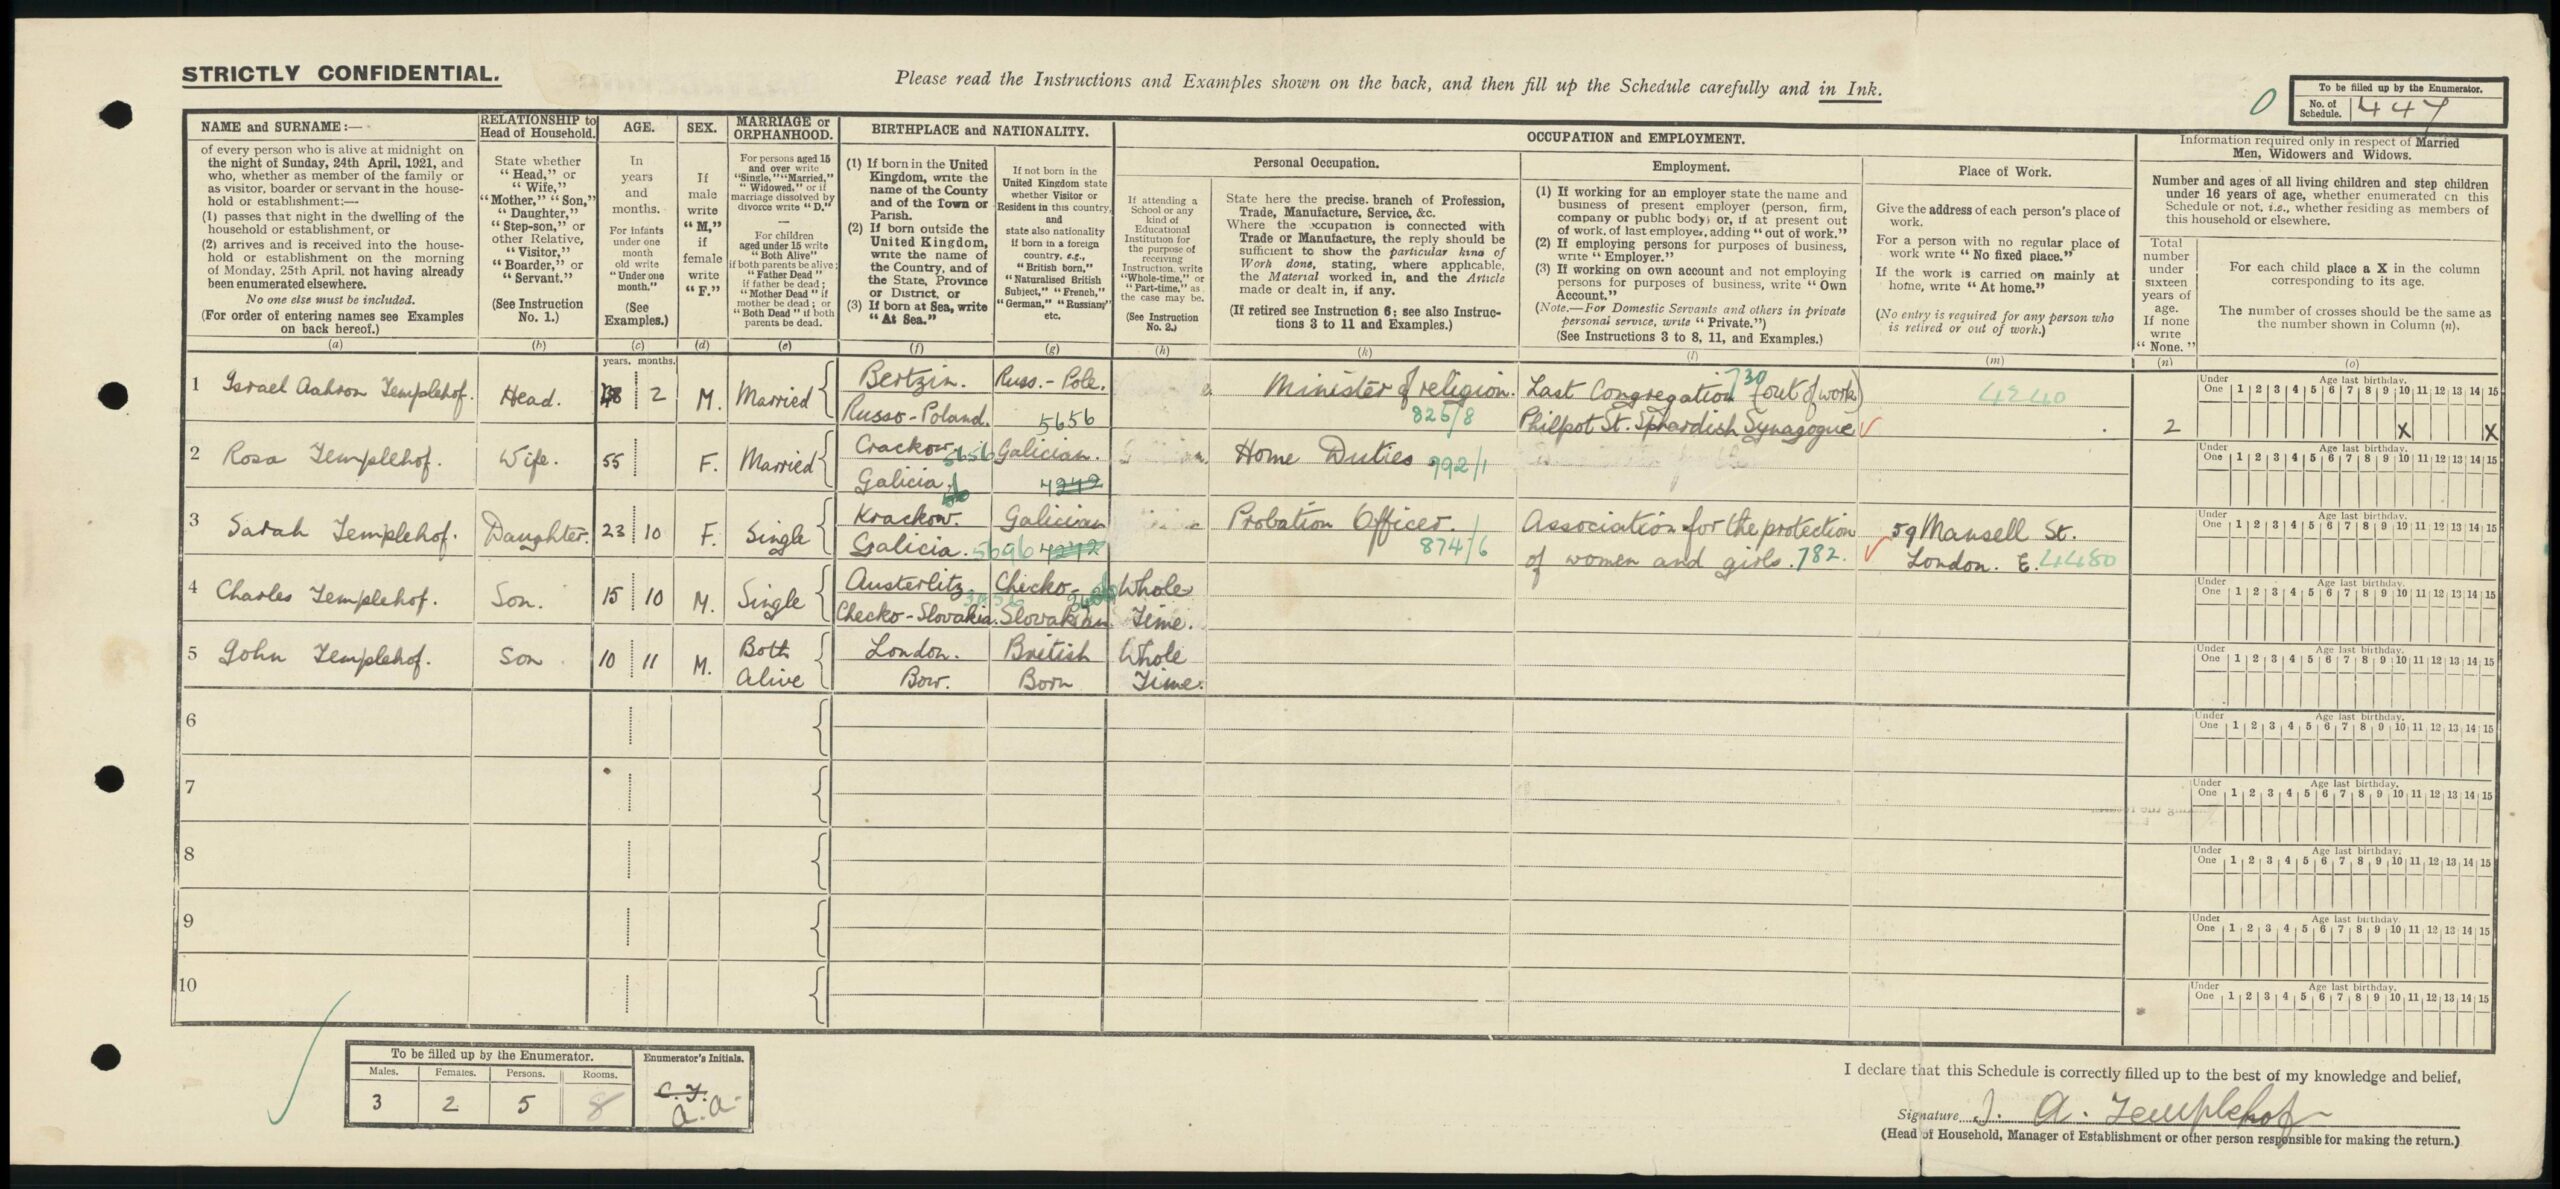 STRICTLY CONFIDENTIAL.
Please read the Instructions and Examples shown on the back, and then fill up the Schedule carefully and in Ink.
0
To be filled up by the Enumerator.
No. of Schedule. 447
NAME and SURNAME:—
of every person who is alive at midnight on
the night of Sunday, 24th April, 1921, and
who, whether as member of the family or
as visitor, boarder or servant in the house-
hold or establishment:—
(1) passes that night in the dwelling of the
household or establishment, or
(2) arrives and is received into the house-
hold or establishment on the morning
of Monday, 25th April, not having already
been enumerated elsewhere.
No one else must be included.
(For order of entering names see Examples
on back hereof.)
(a)
RELATIONSHIP to
Head of Household.
State whether
"Head," or
"Wife,"
"Mother," "Son,"
"Daughter,"
"Step-son," or
other Relative,
"Visitor,"
"Boarder," or
"Servant."
(See Instruction
No. 1.)
(b)
AGE.
In
years
and
months.
For infants
under one
month
old write
"Under one
month."
(See
Examples.)
(c)
years. months.
SEX.
If
male
write
"M,"
if
female
write
"F."
(d)
MARRIAGE or
ORPHANHOOD.
For persons aged 15
and over write
"Single," "Married,"
"Widowed," or if
marriage dissolved by
divorce write "D."
—
For children
aged under 15 write
"Both Alive"
if both parents be alive;
"Father Dead"
if father be dead;
"Mother Dead" if
mother be dead; or
"Both Dead" if both
parents be dead.
(e)
BIRTHPLACE and NATIONALITY.
(1) If born in the United
Kingdom, write the
name of the County
and of the Town or
Parish.
(2) If born outside the
United Kingdom,
write the name of
the Country, and of
the State, Province
or District, or
(3) If born at Sea, write
"At Sea."
(f)
If not born in the
United Kingdom state
whether Visitor or
Resident in this country,
and
state also nationality
if born in a foreign
country, e.g.,
"British born,"
"Naturalised British
Subject," "French,"
"German," "Russian,"
etc.
(g)
OCCUPATION and EMPLOYMENT.
Personal Occupation.
If attending a
School or any
kind of
Educational
Institution for
the purpose of
receiving
Instruction, write
"Whole-time," or
"Part-time," as
the case may be.
(See Instruction
No. 2.)
(h)
State here the precise branch of Profession,
Trade, Manufacture, Service, &c.
Where the occupation is connected with
Trade or Manufacture, the reply should be
sufficient to show the particular kind of
Work done, stating, where applicable,
the Material worked in, and the Article
made or dealt in, if any.
(If retired see Instruction 6; see also Instruc-
tions 3 to 11 and Examples.)
(k)
Employment.
(1) If working for an employer state the name and
business of present employer (person, firm,
company or public body) or, if at present out
of work, of last employer, adding "out of work."
(2) If employing persons for purposes of business,
write "Employer."
(3) If working on own account and not employing
persons for purposes of business, write "Own
Account."
(Note.—For Domestic Servants and others in private
personal service, write "Private.")
(See Instructions 3 to 8, 11, and Examples.)
(l)
Place of Work.
Give the address of each person's place of
work.
For a person with no regular place of
work write "No fixed place."
If the work is carried on mainly at
home, write "At home."
(No entry is required for any person who
is retired or out of work.)
(m)
Information required only in respect of Married
Men, Widowers and Widows.
Number and ages of all living children and step children
under 16 years of age, whether enumerated on this
Schedule or not, i.e., whether residing as members of
this household or elsewhere.
Total
number
under
sixteen
years of
age.
If none
write
"None."
(n)
For each child place a X in the column
corresponding to its age.
The number of crosses should be the same as
the number shown in Column (n).
(o)
1 Israel Aahron Templehof. Head. 2 M. Married Bertzin. Russ.-Pole. Minister of religion. Last Congregation 730 (out of work) 4240
Russo-Poland. 5656 826/8 Philpot St. Sphardish Synagogue 2 X X
Under One 1 2 3 4 5 6 7 8 9 10 11 12 13 14 15
Age last birthday.
2 Rosa Templehof. Wife. 55 F. Married Crackow 5656 Galician. Home Duties 992/1
Galicia. 4242
Under One 1 2 3 4 5 6 7 8 9 10 11 12 13 14 15
Age last birthday.
3 Sarah Templehof. Daughter. 23 10 F. Single Krackow. Galician Probation Officer. Association for the protection 59 Mansell St.
Galicia. 5696 4242 874/6 of women and girls. 782. London. E. 4480
Under One 1 2 3 4 5 6 7 8 9 10 11 12 13 14 15
Age last birthday.
4 Charles Templehof. Son. 15 10 M. Single Austerlitz Checko- Whole
Checko-Slovakia. Slovakian Time.
Under One 1 2 3 4 5 6 7 8 9 10 11 12 13 14 15
Age last birthday.
5 John Templehof. Son 10 11 M. Both London. British Whole
Alive Bow. Born Time.
Under One 1 2 3 4 5 6 7 8 9 10 11 12 13 14 15
Age last birthday.
6
Under One 1 2 3 4 5 6 7 8 9 10 11 12 13 14 15
Age last birthday.
7
Under One 1 2 3 4 5 6 7 8 9 10 11 12 13 14 15
Age last birthday.
8
Under One 1 2 3 4 5 6 7 8 9 10 11 12 13 14 15
Age last birthday.
9
Under One 1 2 3 4 5 6 7 8 9 10 11 12 13 14 15
Age last birthday.
10
Under One 1 2 3 4 5 6 7 8 9 10 11 12 13 14 15
Age last birthday.
To be filled up by the Enumerator.
Males. Females. Persons. Rooms.
3 2 5 8
Enumerator's Initials.
C.F.
a.a.
I declare that this Schedule is correctly filled up to the best of my knowledge and belief,
Signature I. A. Templehof
(Head of Household, Manager of Establishment or other person responsible for making the return.)